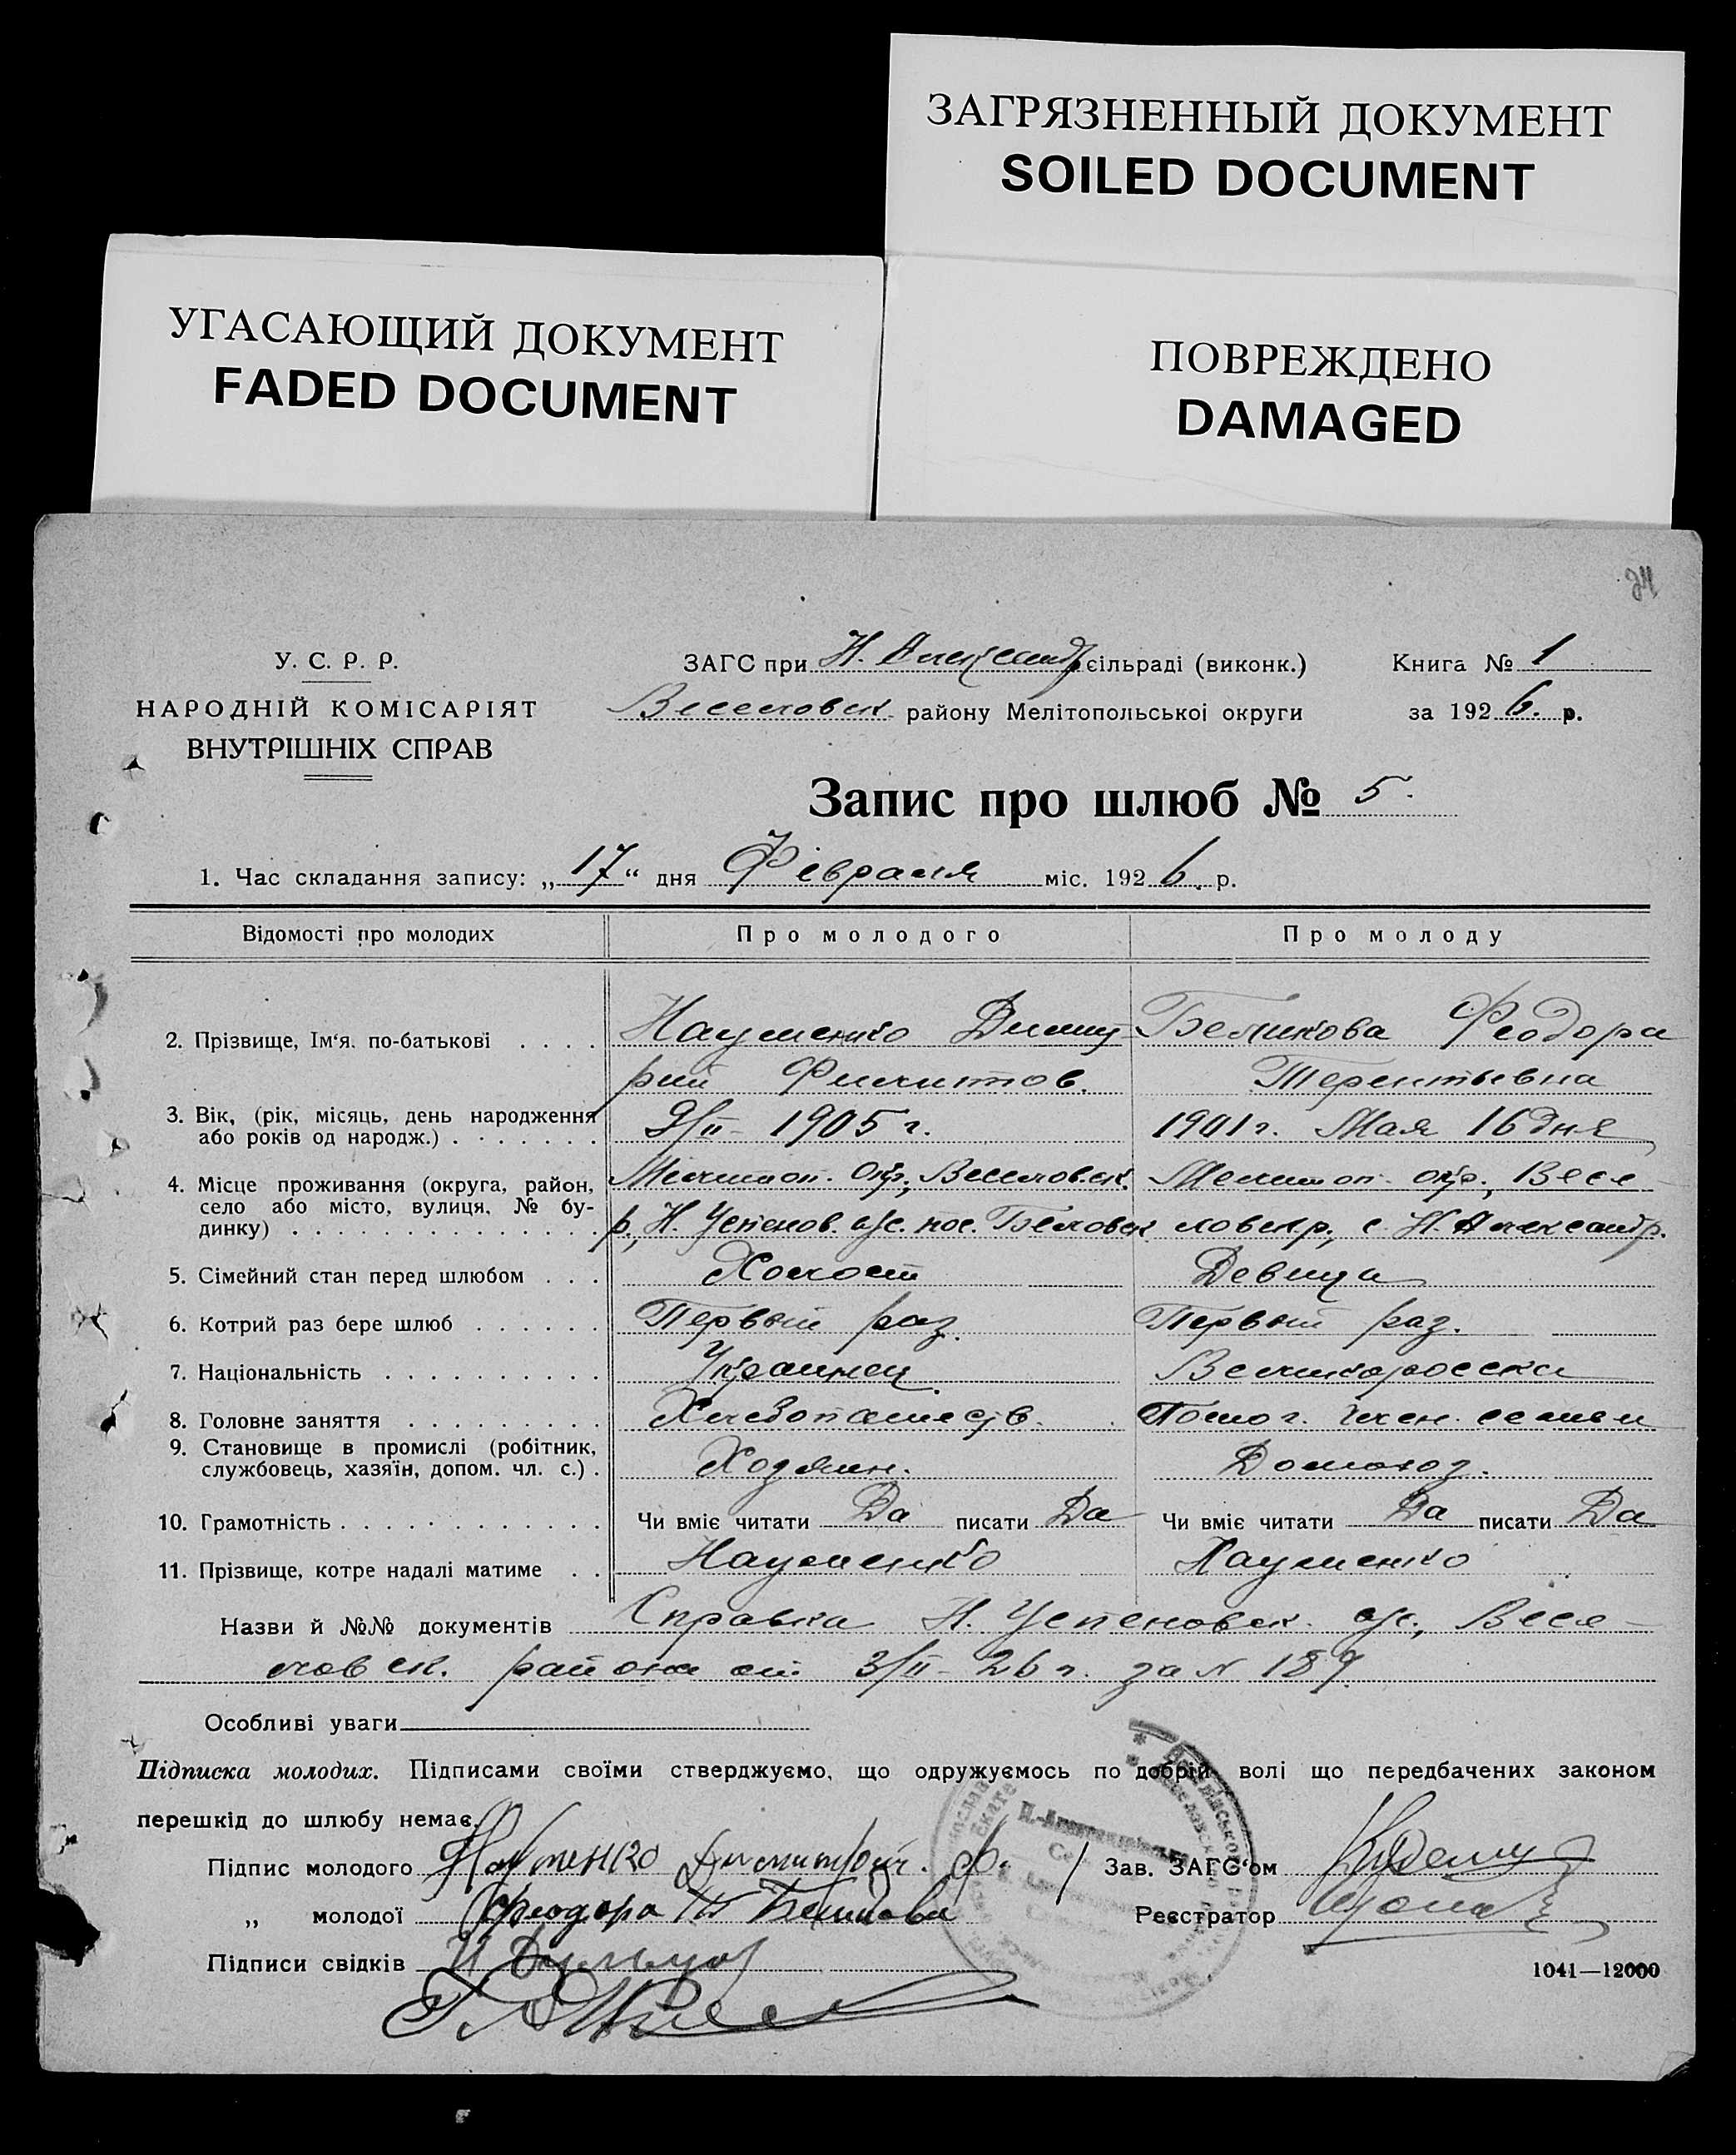 ЗАГРЯЗНЕННЫЙ ДОКУМЕНТ
SOILED DOCUMENT
УГАСАЮЩИЙ ДОКУМЕНТ
FADED DOCUMENT
ПОВРЕЖДЕНО
DAMAGED
У. С. Р. Р.
НАРОДНІЙ КОМІСАРІЯТ
ВНУТРІШНІХ СПРАВ
ЗАГС при Н. Александр. сільраді (виконк.) Книга № 1
Веселовск. району Мелітопольської округи за 1926. р.
Запис про шлюб № 5.
1. Час складання запису: „17“ дня Февраля міс. 1926. р.
Відомості про молодих Про молодого Про молоду
2. Прізвище, Ім'я. по-батькові . . . . Науменко Димит- Беликова Феодора
рий Филитов. Терентьевна
3. Вік, (рік, місяць, день народження 9/II- 1905 г. 1901 г. Мая 16 дня
або років од народж.) . . . . . . .
4. Місце проживання (округа, район, Мелитоп. окр., Веселовск. Мелитоп. окр., Весе-
село або місто, вулиця, № бу- р., Н. Успенов. с/с. пос. Беловск ловск р., с. Н. Александр.
динку) . . . . . . . . . . . . . .
5. Сімейний стан перед шлюбом . . . Холост Девица
6. Котрий раз бере шлюб . . . . . . Первый раз. Первый раз.
7. Національність . . . . . . . . . . Украинец. Великоросска
8. Головне заняття . . . . . . . . . Хлебопашеств. Помог. член. семьи
9. Становище в промислі (робітник, Хозяин. Домохоз.
службовець, хазяїн, допом. чл. с.) .
10. Грамотність . . . . . . . . . . . . Чи вміє читати Да писати Да Чи вміє читати Да писати Да
11. Прізвище, котре надалі матиме . . Науменко Науменко
Назви й №№ документів Справка Н. Успеновск. с/с., Весе-
ловск. района от 3/II- 26 г. за N 189
Особливі уваги
Підписка молодих. Підписами своїми стверджуємо, що одружуємось по добрій волі що передбачених законом
перешкід до шлюбу немає.
Підпис молодого Науменко Димитрий. Ф. Зав. ЗАГС'ом
„ молодої Феодора Т Беликова Реєстратор
Підписи свідків
1041—12000